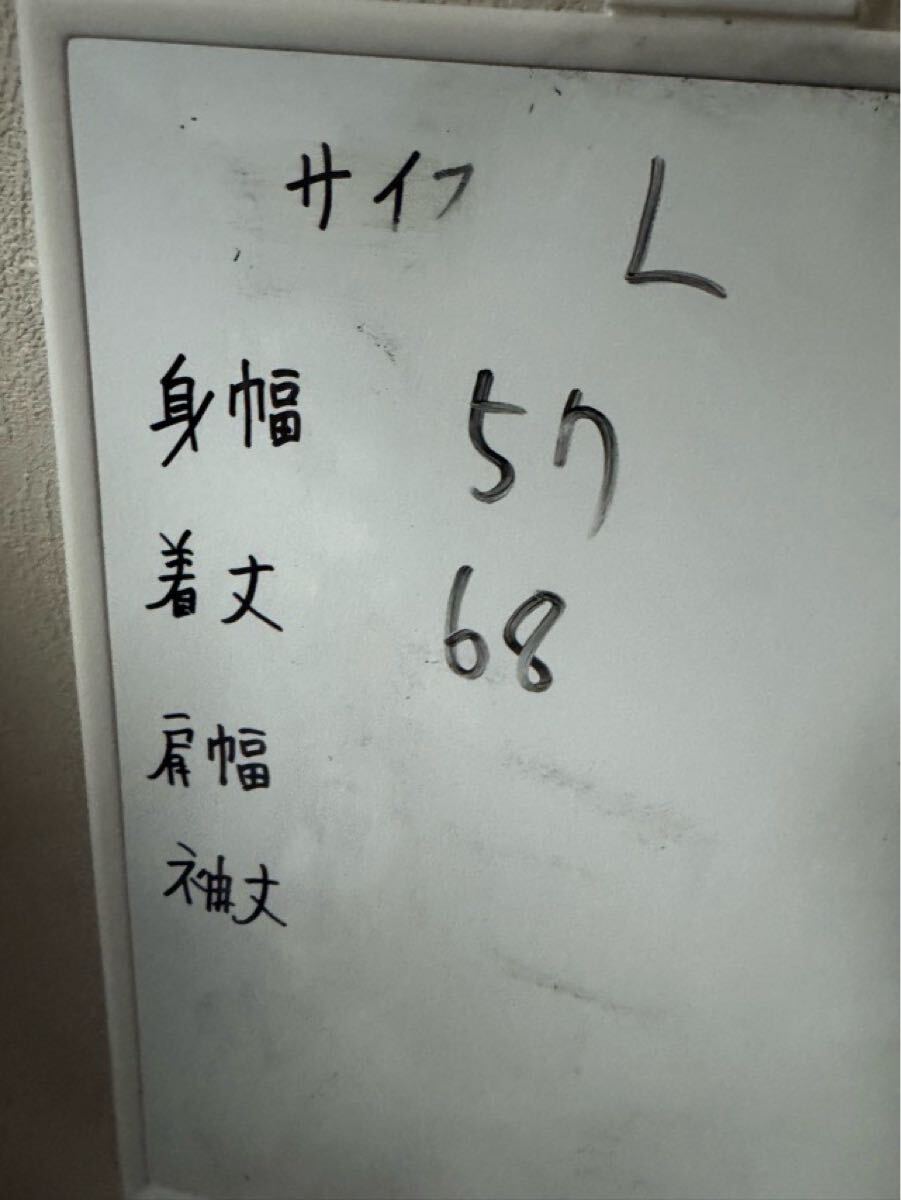 サイフ L
身幅 57
着丈 68
肩幅
袖丈